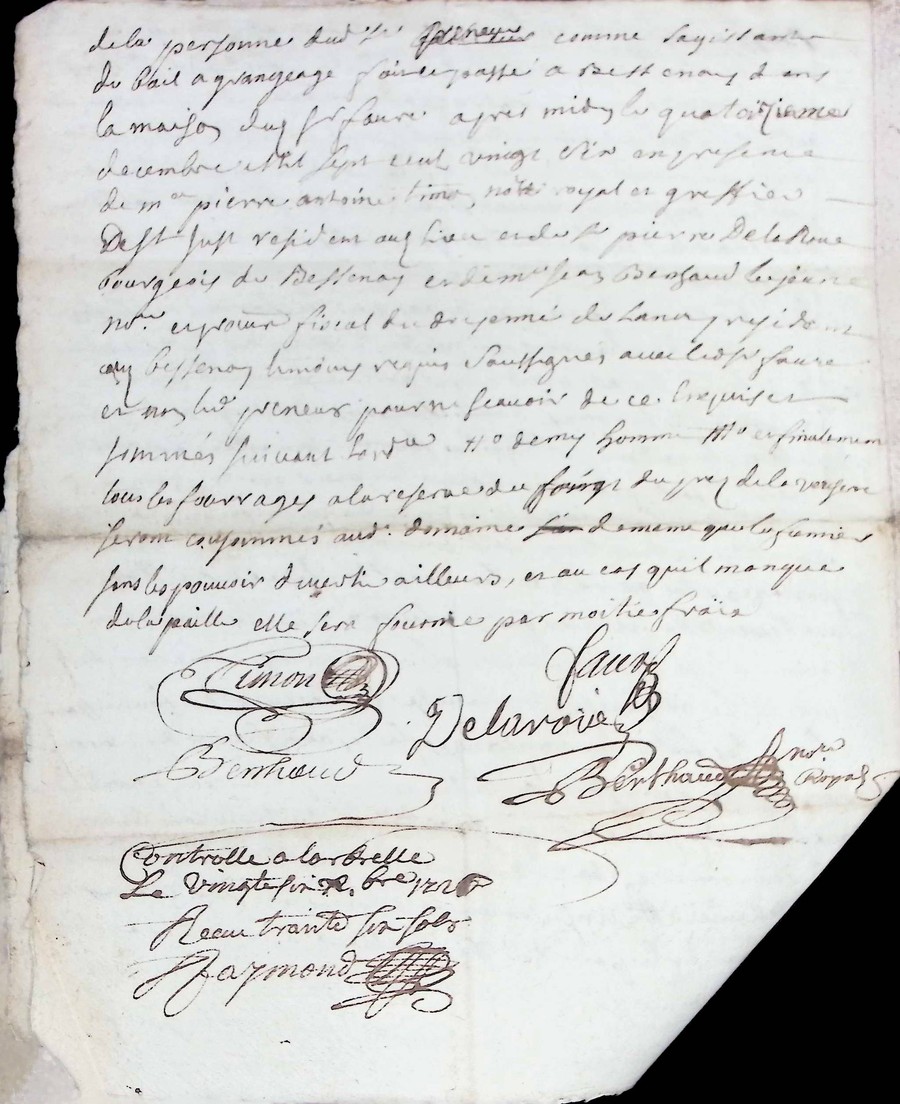 de la personne dud. sr. preneur comme sagissant
du bail a grangeage fait et passé a Bessenay dans
la maison dud sr faure apres midy le quatorzieme
decembre mil sept cent vingt six en presence
de me pierre antoine timon notre royal et greffier
De st just resident aud lieu et du sr pierre Delaroue
bourgeois de Bessenay et de me jean Berthaud le jeune
nore. et procur fiscal du doyenné de resident
aud bessenay temoins requis soussignes avec led sr faure
et non led preneur pour ne scavoir de ce enquis et
sommés suivant lord. tto demy homme tto et finalement
tous les fourrages a la reserve du foingt du prez de la
seront consommés aud. domaine de meme que le fumier
sans les pouvoir divertir ailleurs, et au cas quil manque
de la paille elle sera fournie par moitie fraix
Timon
faure
Delaroüe
Berthaud
Berthaud nore
Royal
Controlle a larbrelle
Le Vingt six Xbre 1726
Receu trante six sols
Raymond